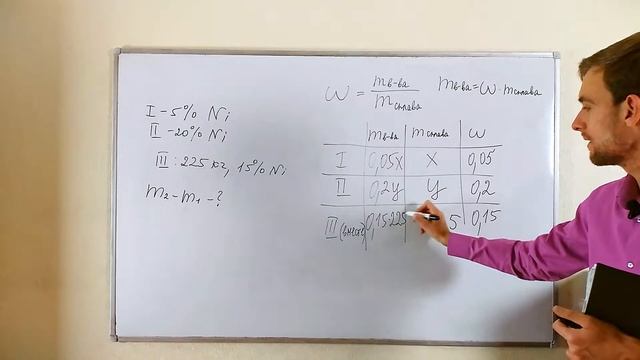 I - 5% Ni
II - 20% Ni
III : 225 кг, 15% Ni
m₂ - m₁ - ?
ω = mв-ва / mсплава
mв-ва = ω · mсплава
mв-ва mсплава ω
I 0,05x x 0,05
II 0,2y y 0,2
III (вместе) 0,15·225 5 0,15